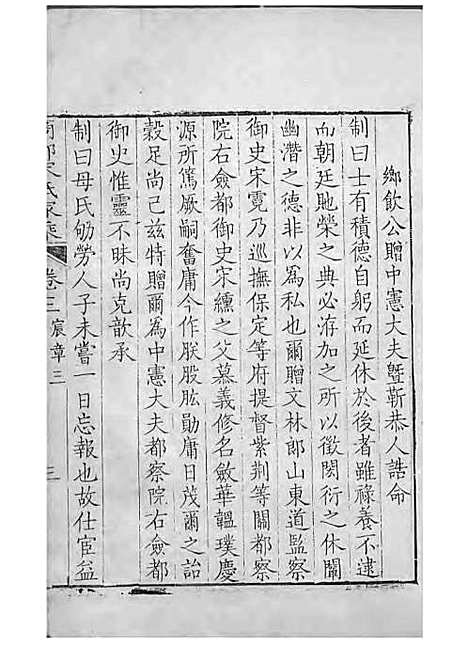 鄉飲公贈中憲大夫暨靳恭人誥命
制曰士有積德自躬而延休於後者雖祿養不逮
而朝廷貤榮之典必洊加之所以徵閎衍之休闡
幽潛之德非以為私也爾贈文林郎山東道監察
御史宋霓乃巡撫保定等府提督紫荆等關都察
院右僉都御史宋纁之父慕義修名斂華韞璞慶
源所篤厥嗣奮庸今作朕股肱勛庸日茂爾之詒
穀足尚已兹特贈爾為中憲大夫都察院右僉都
御史惟靈不昧尚克歆承
制曰母氏劬勞人子未嘗一日忘報也故仕宦益
宋氏家乘 卷三 宸章三 三